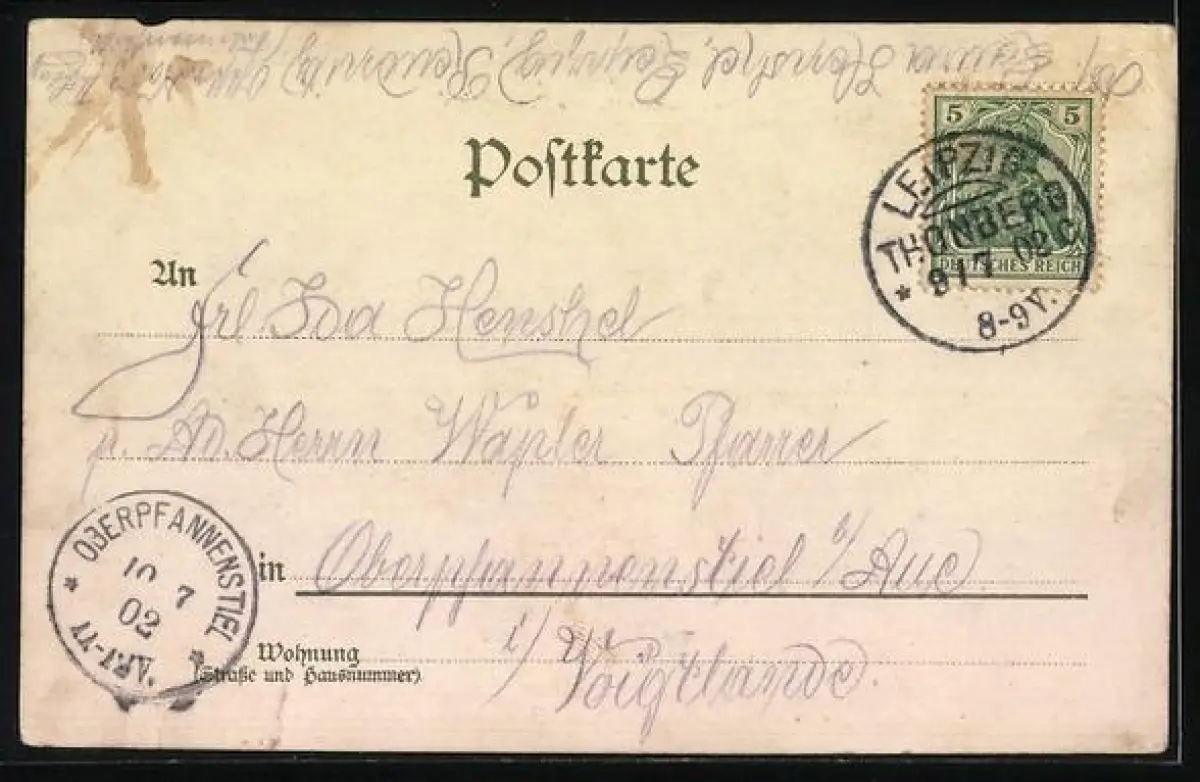 Laura Henshel, Leipzig, Reudnitz
Postkarte
5 5
DEUTSCHES REICH
LEIPZIG
THONBERG
9/7 02
8-9 V.
An Frl. Ida Henshel
p. Ad. Herrn Wäpler Pfarrer
in Oberpfannenstiel b/ Aue
i/ Voigtlande.
Wohnung
(Straße und Hausnummer)
OBERPFANNENSTIEL
10 7
02